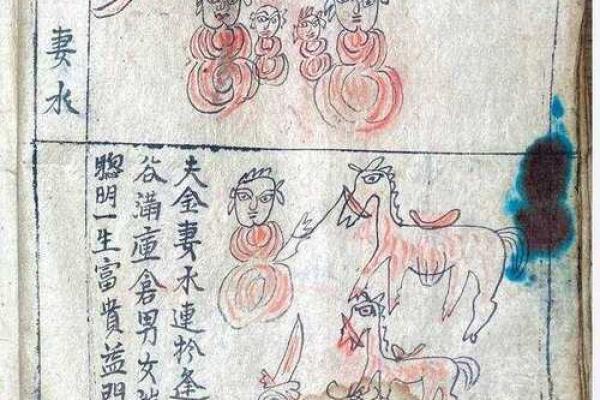 妻水
夫金妻水連扵逢
谷滿庫倉男女
聰明一生富貴益門